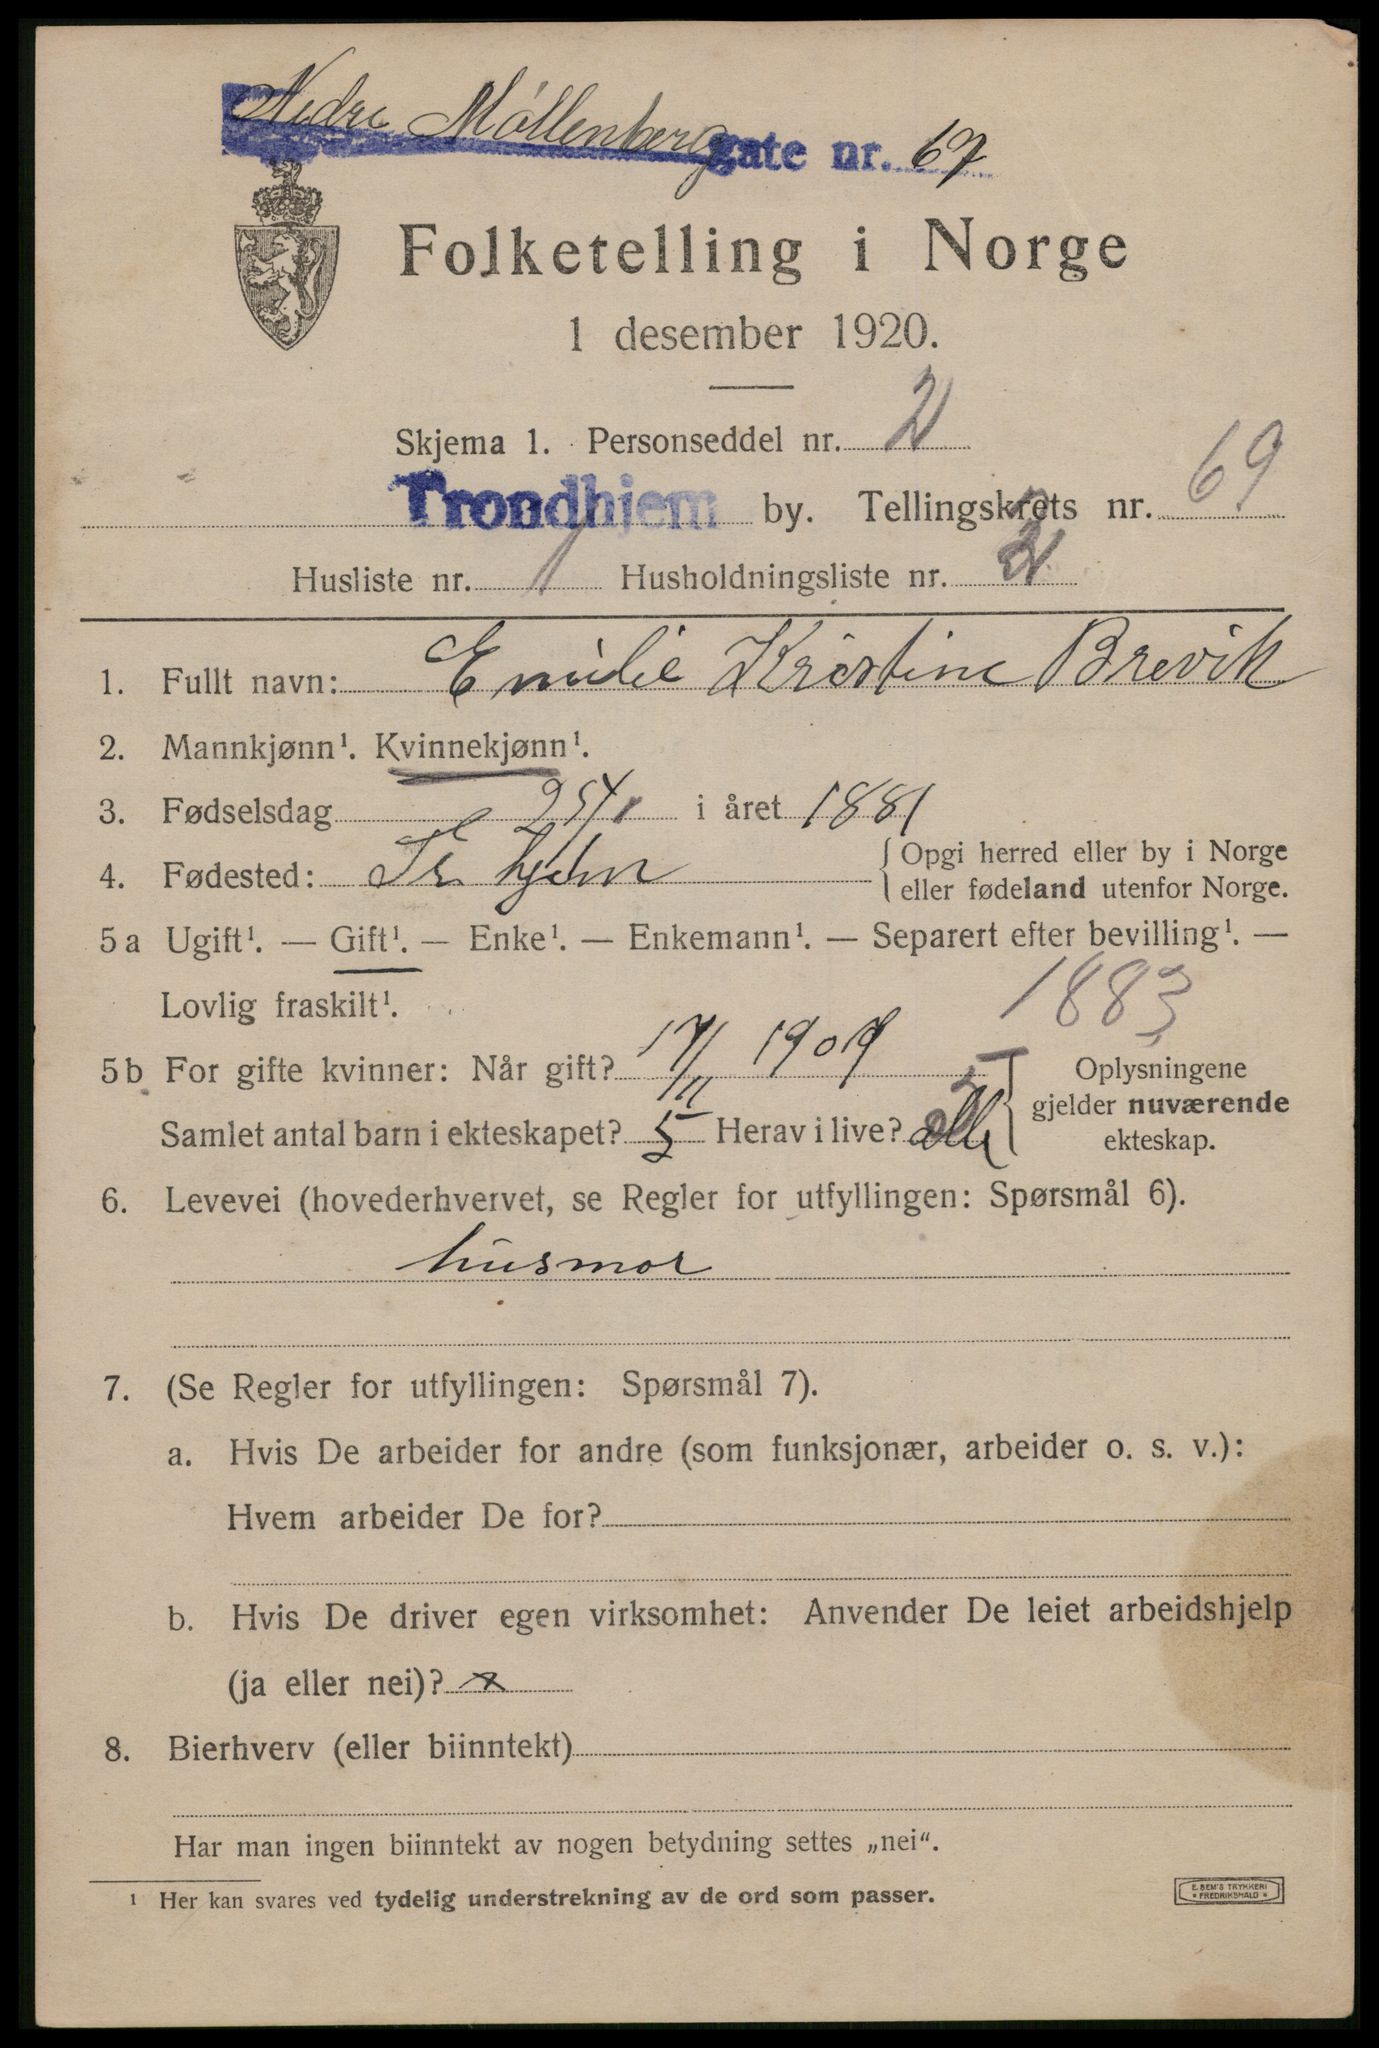 Nedre Möllenberg gate nr. 67
Folketelling i Norge
1 desember 1920.
Skjema 1. Personseddel nr. 2
Trondhjem by. Tellingskrets nr. 69
Husliste nr. 1 Husholdningsliste nr. 2
1. Fullt navn: Emilie Kristine Brevik
2. Mannkjønn¹. Kvinnekjønn¹.
3. Fødselsdag 25/1 i året 1881
4. Fødested: Tr. hjem { Opgi herred eller by i Norge
eller fødeland utenfor Norge.
5a Ugift¹. — Gift¹. — Enke¹. — Enkemann¹. — Separert efter bevilling¹. —
Lovlig fraskilt¹.
1883
5b For gifte kvinner: Når gift? 17/11 1907
Samlet antal barn i ekteskapet? 5 Herav i live? alle
Oplysningene
gjelder nuværende
ekteskap.
6. Levevei (hovederhvervet, se Regler for utfyllingen: Spørsmål 6).
husmor
7. (Se Regler for utfyllingen: Spørsmål 7).
a. Hvis De arbeider for andre (som funksjonær, arbeider o. s. v.):
Hvem arbeider De for?
b. Hvis De driver egen virksomhet: Anvender De leiet arbeidshjelp
(ja eller nei)? x
8. Bierhverv (eller biinntekt)
Har man ingen biinntekt av nogen betydning settes „nei“.
¹ Her kan svares ved tydelig understrekning av de ord som passer.
E. SEM'S TRYKKERI
* FREDRIKSHALD *